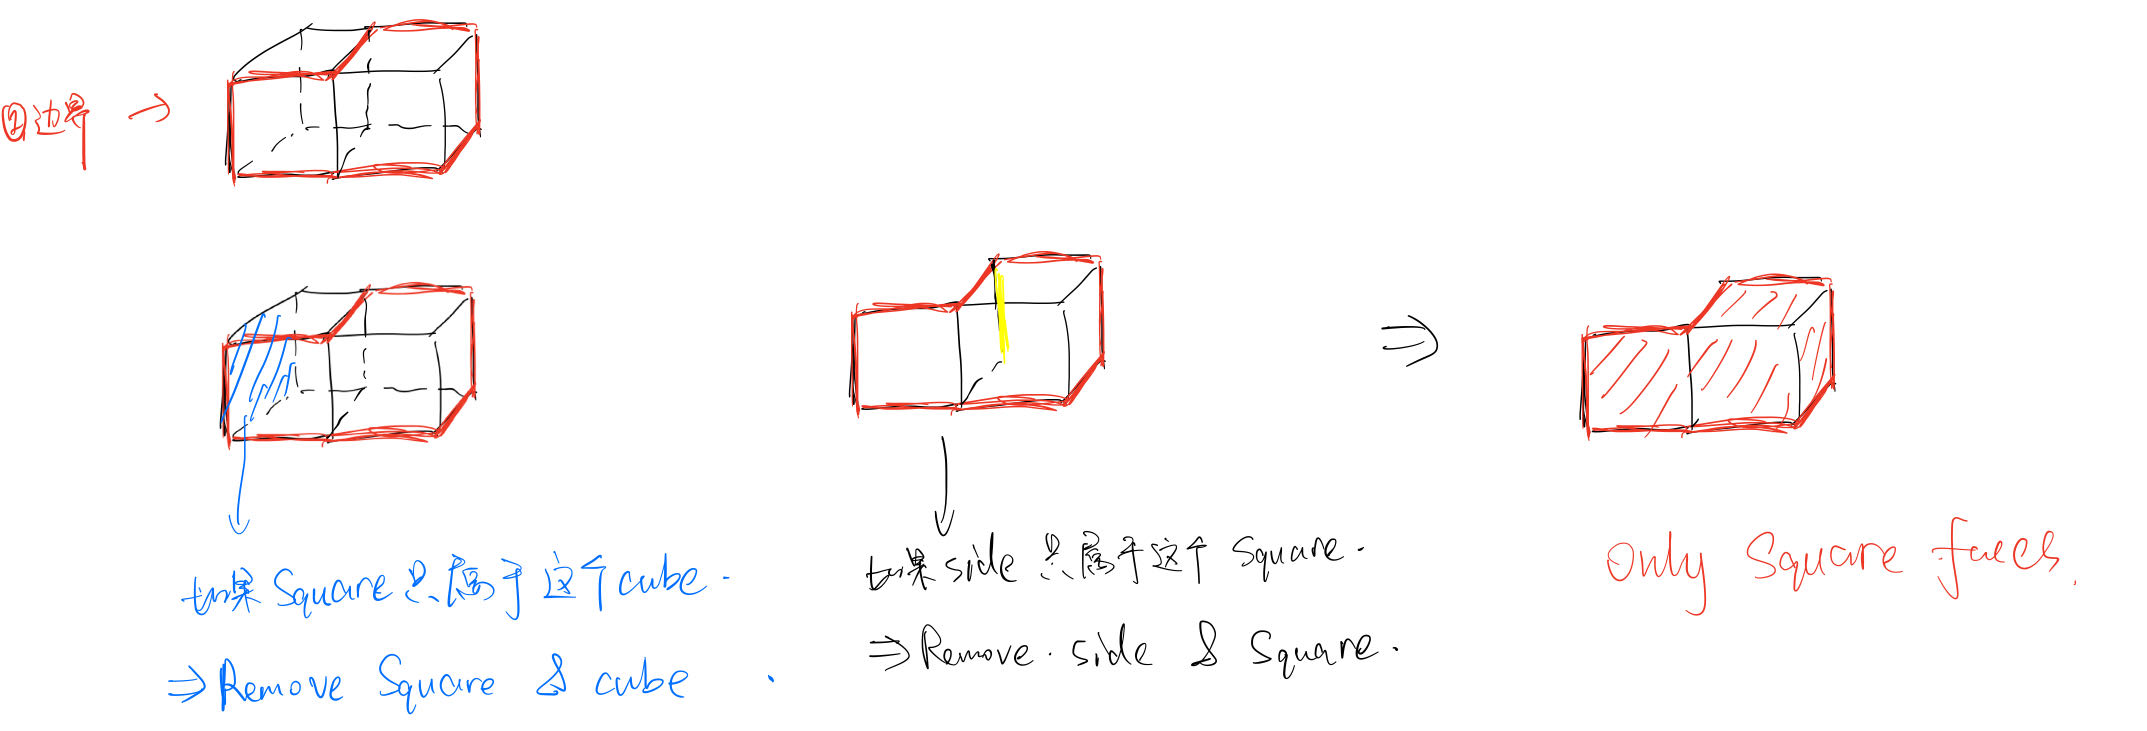 ②边界 →
如果 Square 只属于这个 cube.
⇒ Remove Square & cube.
如果 side 只属于这个 Square.
⇒ Remove. side & Square.
⇒
Only Square faces.